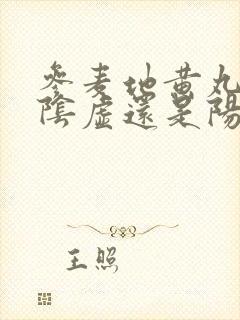 參麦地黄丸
陰虛還是陽
王照